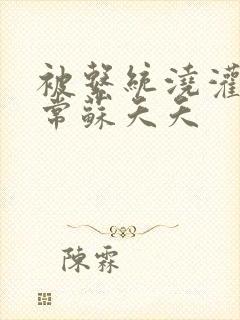 被繫統澆灌
常蘇夭夭
陳霖